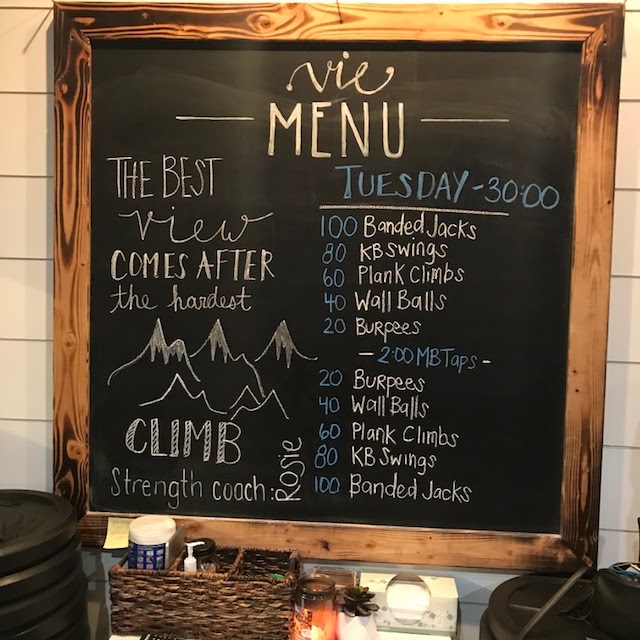 vie
MENU
THE BEST
view
COMES AFTER
the hardest
CLIMB
Strength coach: Rosie
TUESDAY - 30:00
100 Banded Jacks
80 KB Swings
60 Plank Climbs
40 Wall Balls
20 Burpees
- 2:00 MB Taps -
20 Burpees
40 Wall Balls
60 Plank Climbs
80 KB Swings
100 Banded Jacks